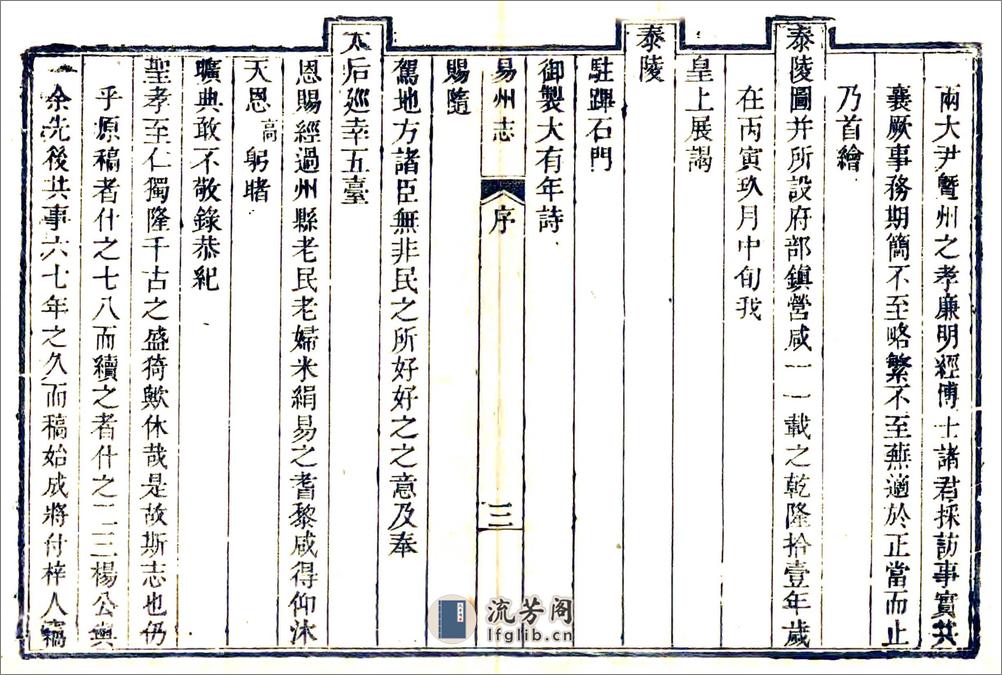 兩大尹暨州之孝廉明經博士諸君採訪事實共
襄厥事務期簡不至略繁不至蕪適於正當而止
乃首繪
泰陵圖并所設府部鎮營咸一一載之乾隆拾壹年歲
在丙寅玖月中旬我
皇上展謁
泰陵
駐蹕石門
御製大有年詩
易州志 序 三
賜隨
駕地方諸臣無非民之所好好之之意及奉
太后巡幸五臺
恩賜經過州縣老民老婦米絹易之耆黎咸得仰沐
天恩高躬睹
曠典敢不敬錄恭紀
聖孝至仁獨隆千古之盛猗歟休哉是故斯志也仍
乎原稿者什之七八而續之者什之二三楊公與
余先後共事六七年之久而稿始成將付梓人稿
流芳阁
lfglib.cn